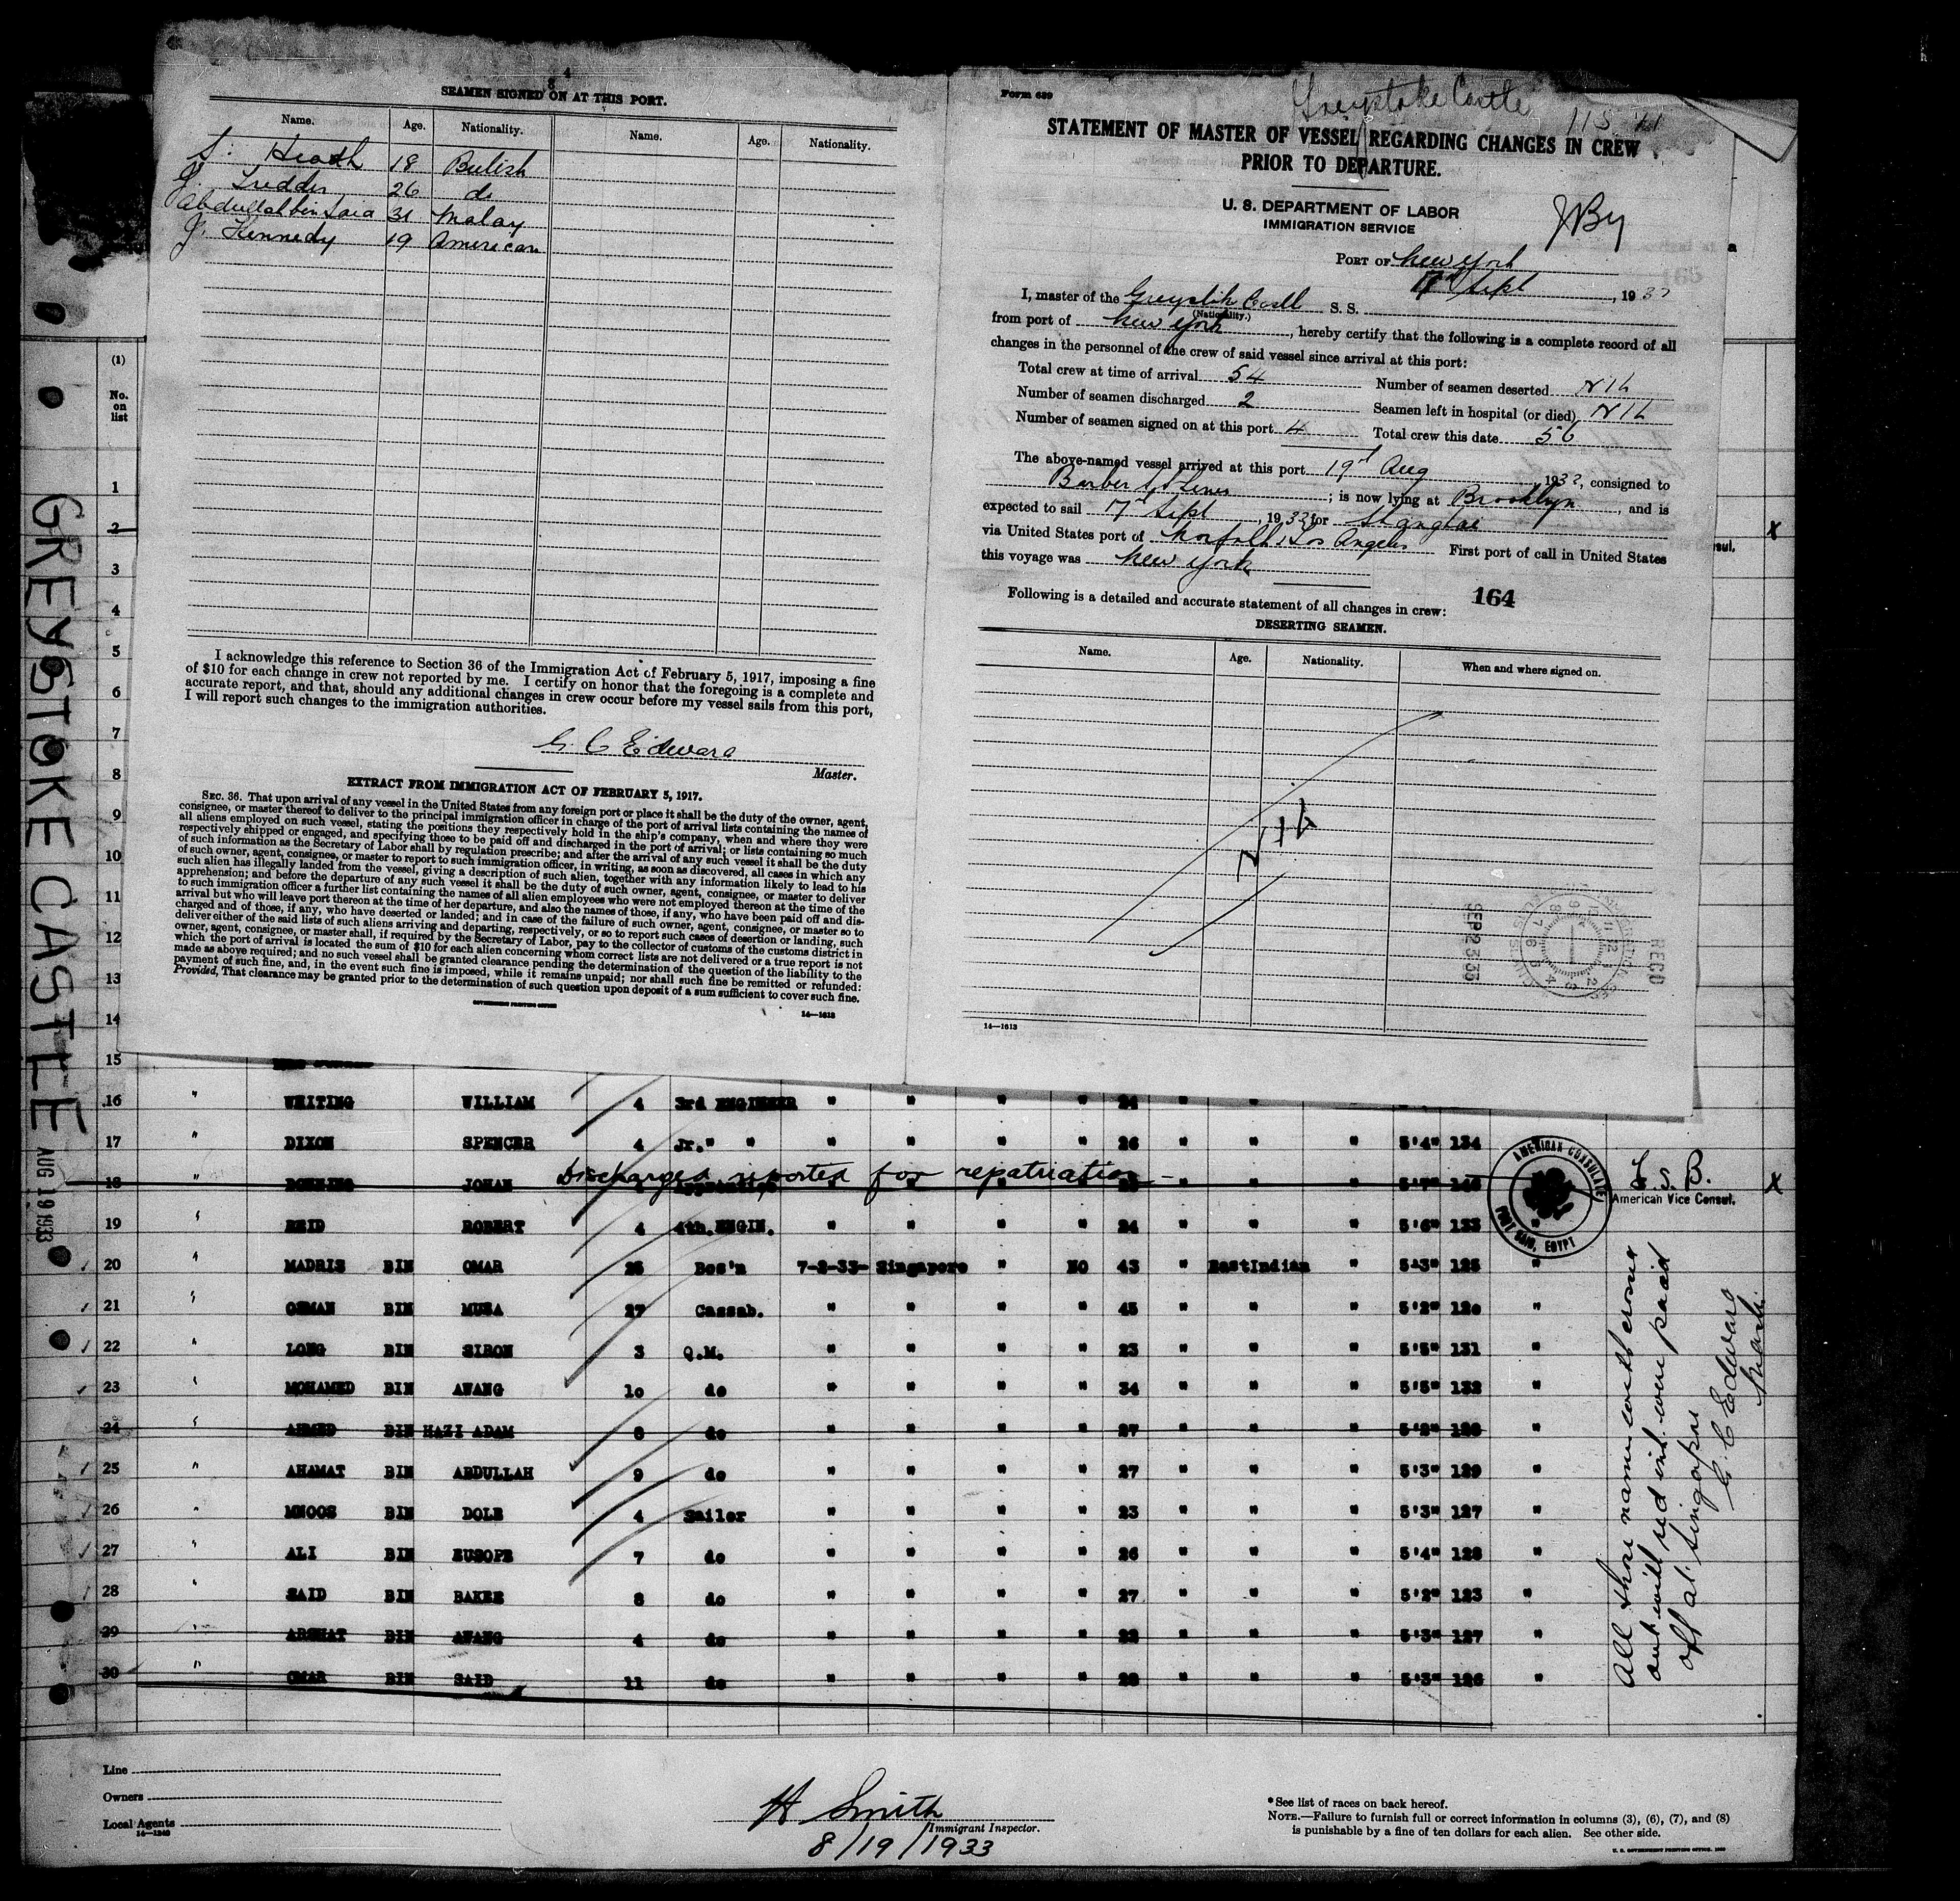 GREYSTOKE CASTLE AUG 19 1933
SEAMEN SIGNED ON AT THIS PORT.
Name. Age. Nationality. Name. Age. Nationality.
S. Heath 18 British
26 do
Abdullah bin Said 31 Malay
J. Kennedy 19 American
I acknowledge this reference to Section 36 of the Immigration Act of February 5, 1917, imposing a fine
of $10 for each change in crew not reported by me. I certify on honor that the foregoing is a complete and
accurate report, and that, should any additional changes in crew occur before my vessel sails from this port,
I will report such changes to the immigration authorities.
G. C Edwards
Master.
EXTRACT FROM IMMIGRATION ACT OF FEBRUARY 5, 1917.
SEC. 36. That upon arrival of any vessel in the United States from any foreign port or place it shall be the duty of the owner, agent,
consignee, or master thereof to deliver to the principal immigration officer in charge of the port of arrival lists containing the names of
all aliens employed on such vessel, stating the positions they respectively hold in the ship's company, when and where they were
respectively shipped or engaged, and specifying those to be paid off and discharged in the port of arrival; or lists containing so much
of such information as the Secretary of Labor shall by regulation prescribe; and after the arrival of any such vessel it shall be the duty
of such owner, agent, consignee, or master to report to such immigration officer, in writing, as soon as discovered, all cases in which any
such alien has illegally landed from the vessel, giving a description of such alien, together with any information likely to lead to his
apprehension; and before the departure of any such vessel it shall be the duty of such owner, agent, consignee, or master to deliver
to such immigration officer a further list containing the names of all alien employees who were not employed thereon at the time of the
arrival but who will leave port thereon at the time of her departure, and also the names of those, if any, who have been paid off and dis-
charged and of those, if any, who have deserted or landed; and in case of the failure of such owner, agent, consignee, or master so to
deliver either of the said lists of such aliens arriving and departing, respectively, or so to report such cases of desertion or landing, such
owner, agent, consignee, or master shall, if required by the Secretary of Labor, pay to the collector of customs of the customs district in
which the port of arrival is located the sum of $10 for each alien concerning whom correct lists are not delivered or a true report is not
made as above required; and no such vessel shall be granted clearance pending the determination of the question of the liability to the
payment of such fine, and, in the event such fine is imposed, while it remains unpaid; nor shall such fine be remitted or refunded:
Provided, That clearance may be granted prior to the determination of such question upon deposit of a sum sufficient to cover such fine.
GOVERNMENT PRINTING OFFICE
14—1613
Form 689
Greystoke Castle
STATEMENT OF MASTER OF VESSEL REGARDING CHANGES IN CREW
PRIOR TO DEPARTURE.
U. S. DEPARTMENT OF LABOR
IMMIGRATION SERVICE
PORT OF New York
7 Sept, 1933
I, master of the Greystoke Castle S. S.
(Nationality.)
from port of New York, hereby certify that the following is a complete record of all
changes in the personnel of the crew of said vessel since arrival at this port:
Total crew at time of arrival 54 Number of seamen deserted NIL
Number of seamen discharged 2 Seamen left in hospital (or died) NIL
Number of seamen signed on at this port 4 Total crew this date 56
The above-named vessel arrived at this port 19 Aug 1933, consigned to
Barber SS Lines; is now lying at Brooklyn, and is
expected to sail 7 Sept, 1933 for Shanghai
via United States port of Norfolk, Los Angeles First port of call in United States
this voyage was New York
Following is a detailed and accurate statement of all changes in crew: 164
DESERTING SEAMEN.
Name. Age. Nationality. When and where signed on.
NIL
RECD
SEP 25 33
14—1613
(1)
No.
on
list
1
2
3
4
5
6
7
8
9
10
11
12
13
14
15
16 " WHITING WILLIAM 4 3rd ENGINEER " " " " 24 " " "
17 " DIXON SPENCER 4 Jr." " " " " " 26 " " " 5'4" 134
Discharged reported for repatriation
18 " JOHAN Apprentice
19 " REID ROBERT 4 4th.ENGIN. " " " " 24 " " " 5'6" 133 "
20 " MADRIS BIN OMAR 25 Bos'n 7-2-33- Singapore " NO 43 " EastIndian " 5'3" 125 "
21 " OSMAN BIN MUSA 27 Cassab. " " " " 45 " " " 5'2" 120 "
22 " LONG BIN SIRON 3 Q.M. " " " " 23 " " " 5'5" 131 "
23 " MOHAMED BIN AWANG 10 do " " " " 34 " " " 5'5" 132 "
24 " AHMED BIN HAZI ADAM 8 do " " " " 27 " " " 5'2" 128 "
25 " AHAMAT BIN ABDULLAH 9 do " " " " 27 " " " 5'3" 129 "
26 " MNOOS BIN DOLE 4 Sailor " " " " 23 " " " 5'3" 127 "
27 " ALI BIN EUSOPE 7 do " " " " 26 " " " 5'4" 128 "
28 " SAID BIN BAKER 8 do " " " " 27 " " " 5'2" 123 "
29 " ARSHAT BIN AWANG 4 do " " " " 22 " " " 5'3" 127 "
30 " OMAR BIN SAID 11 do " " " " 28 " " " 5'3" 126 "
AMERICAN CONSULATE
PORT SAID, EGYPT
American Vice Consul.
All those names with crosses
out will and were paid
off at Singapore
G. C Edwards
Master
Line
Owners
Local Agents
14—1240
H Smith
Immigrant Inspector.
8/19/1933
*See list of races on back hereof.
NOTE.—Failure to furnish full or correct information in columns (3), (6), (7), and (8)
is punishable by a fine of ten dollars for each alien. See other side.